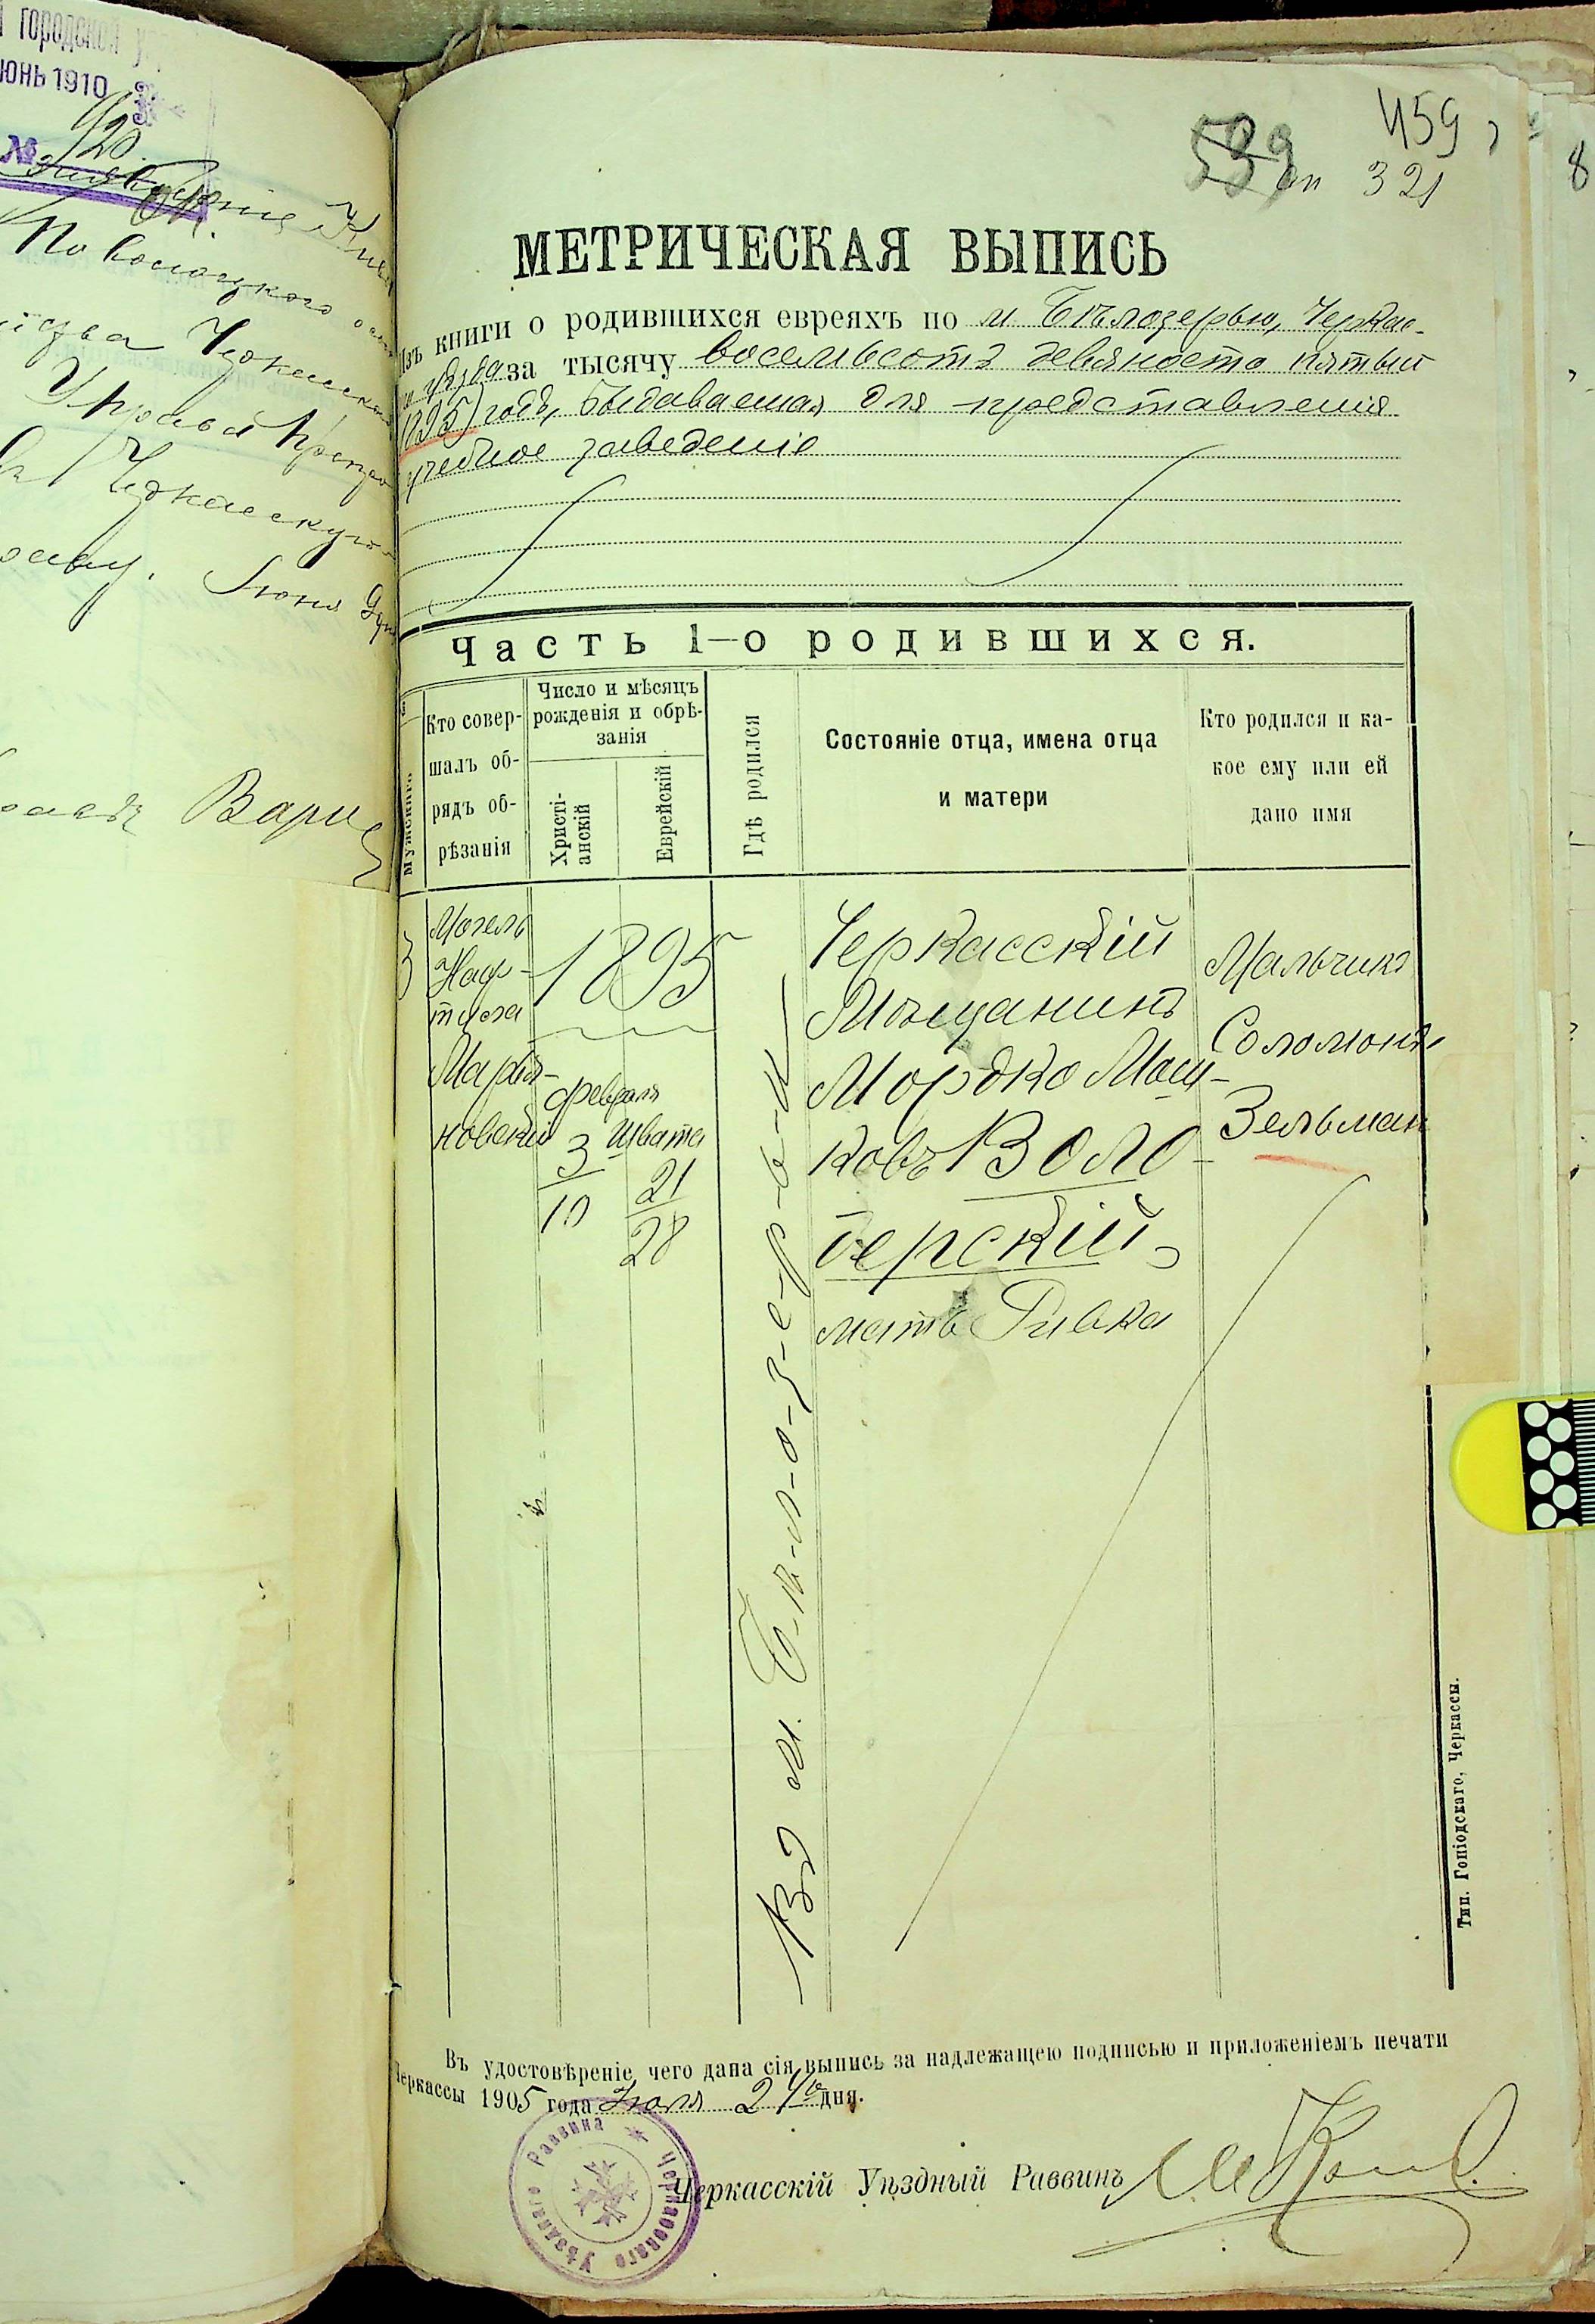 городской
ЮНЬ 1910
№ 920
Черкасск
Управа
Черкасскую
Іюня
459
539 оп 321
8
МЕТРИЧЕСКАЯ ВЫПИСЬ
Изъ книги о родившихся евреяхъ по м Бѣлозерью, Черкас-
го уѣзда за тысячу восемьсотъ девяносто пятый
1895) годъ, выдаваемая для представленія
учебное заведеніе
Часть 1—о родившихся.
Мужского
Кто совер-
шалъ об-
рядъ об-
рѣзанія
Число и мѣсяцъ
рожденія и обрѣ-
занія
Христі-
анскій
Еврейскій
Гдѣ родился
Состояніе отца, имена отца
и матери
Кто родился и ка-
кое ему или ей
дано имя
3
Могель
Наф-
тула
Марья-
новскій
1895
февраля
3
10
Швата
21
28
Въ м. Бѣ-л-о-з-е-р-ь-и
Черкасскій
Мѣщанинъ
Мордко Мош-
ковъ Воло-
берскій
мать Ривка
Мальчикъ
Соломонъ
Зельман
Тип. Гопіодскаго, Черкассы.
Въ удостовѣреніе чего дана сія выпись за надлежащею подписью и приложеніемъ печати
Черкассы 1905 года Іюля 24го дня.
Черкасскій Уѣздный Раввинъ
Черкасскаго Уѣзднаго Раввина